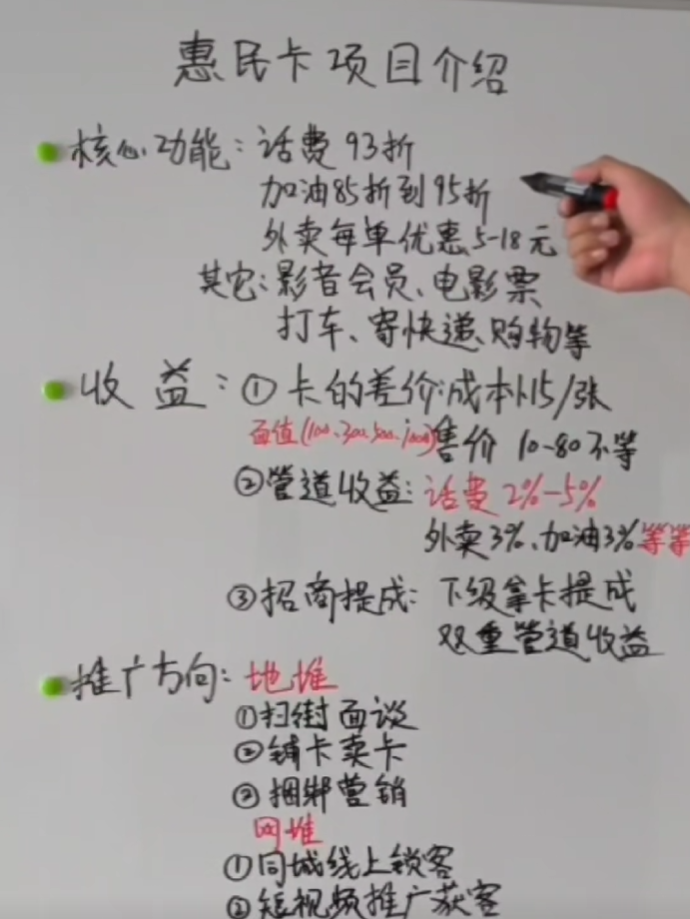 惠民卡项目介绍
核心功能：话费93折
加油85折到95折
外卖每单优惠5-18元
其它：影音会员、电影票
打车、寄快递、购物等
收益：①卡的差价：成本1-15/张
面值(100.300.500.1000)售价 10-80不等
②管道收益：话费2%-5%
外卖3%、加油3%等等
③招商提成：下级拿卡提成
双重管道收益
推广方向：地堆
①扫街面谈
②铺卡卖卡
③捆绑营销
网堆
①同城线上锁客
②短视频推广获客